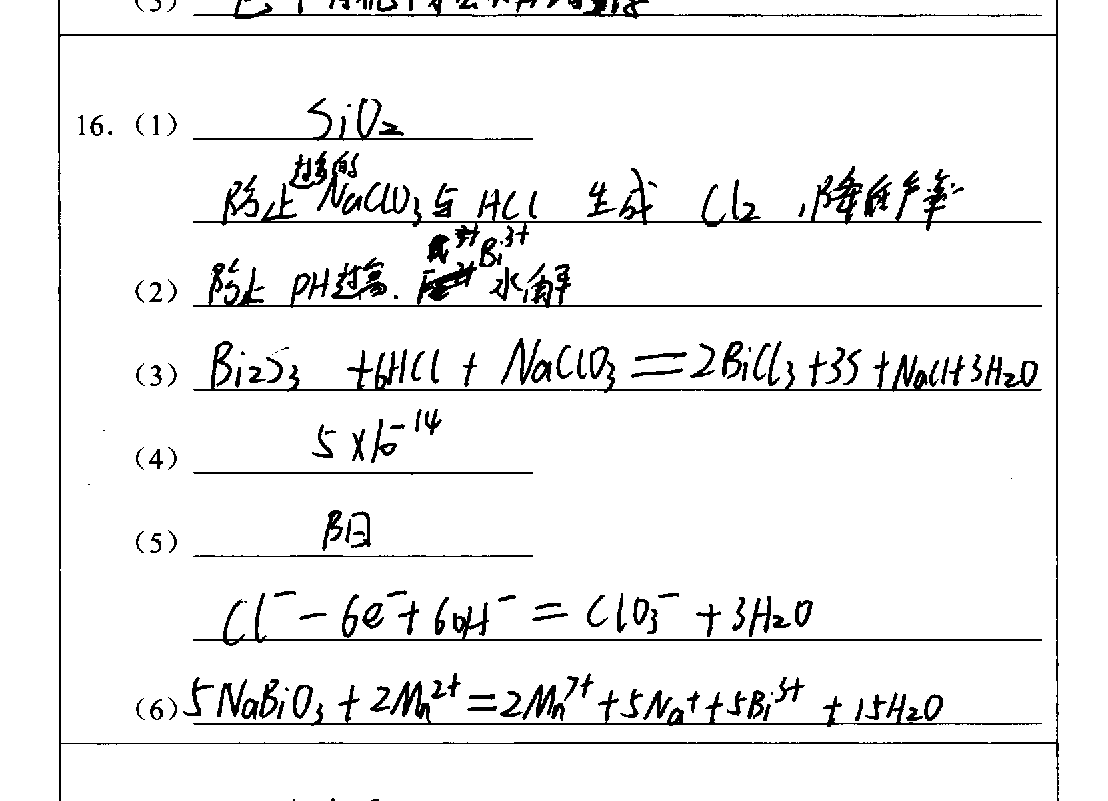 16. (1) SiO₂
防止过多的NaClO₃与HCl 生成 Cl₂,降低产率
(2) 防止 PH过高. Bi³⁺水解
(3) Bi₂S₃ +6HCl + NaClO₃ = 2BiCl₃+3S+NaCl+3H₂O
(4) 5×10⁻¹⁴
(5) 阳
Cl⁻-6e⁻+6OH⁻ = ClO₃⁻+3H₂O
(6) 5NaBiO₃+2Mn²⁺=2Mn⁷⁺+5Na⁺+5Bi³⁺+15H₂O